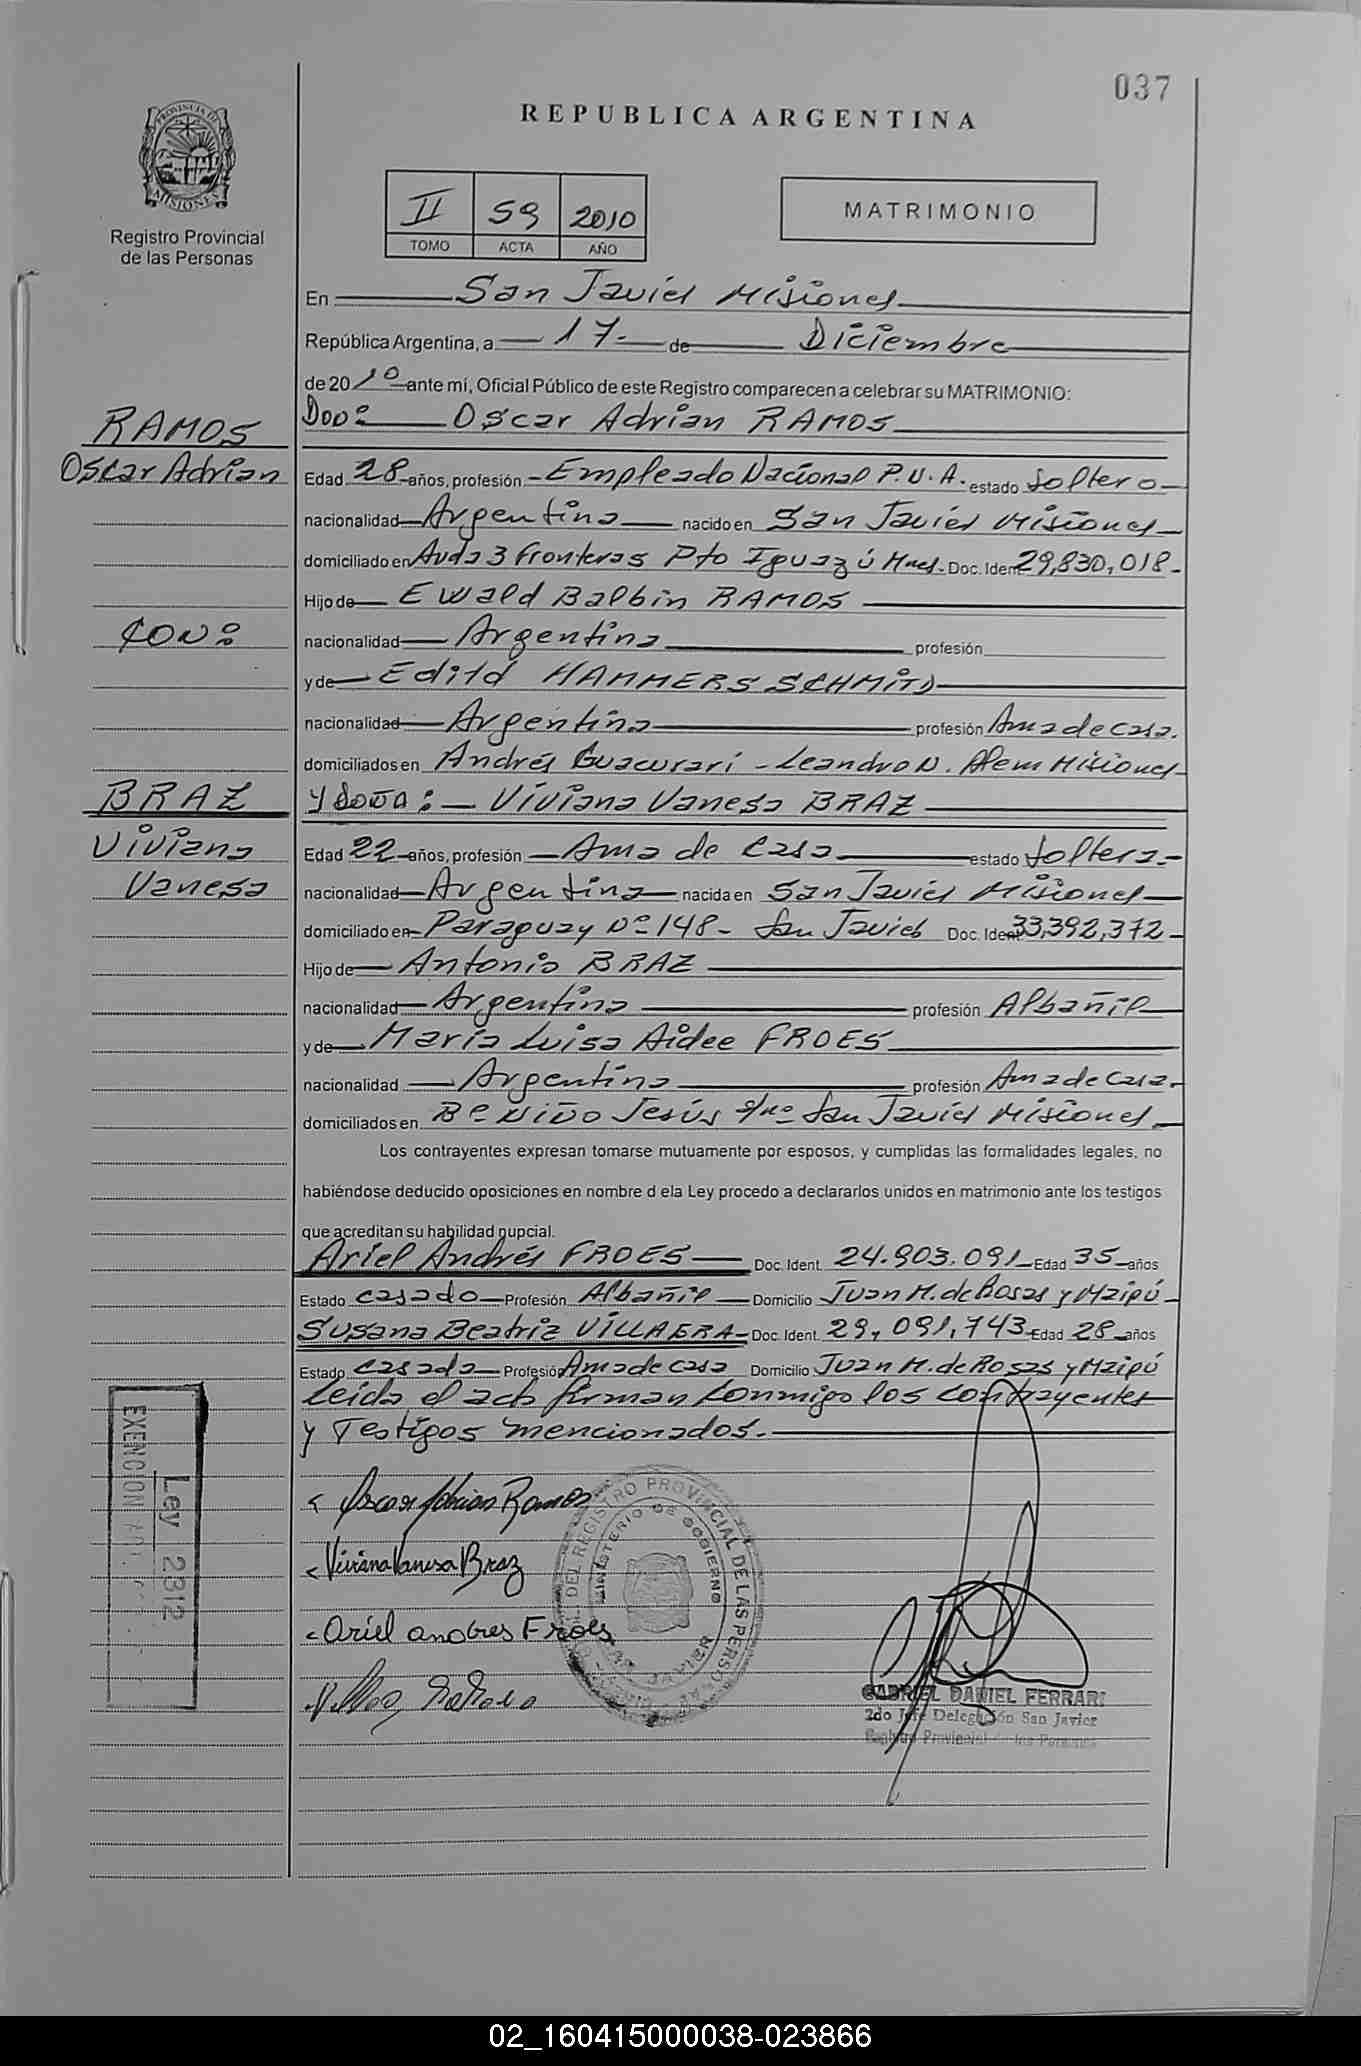 037
REPUBLICA ARGENTINA
PROVINCIA DE
MISIONES
Registro Provincial
de las Personas
II 59 2010
TOMO ACTA AÑO
MATRIMONIO
En San Javier Misiones
República Argentina, a 17 de Diciembre
de 2010 ante mi, Oficial Público de este Registro comparecen a celebrar su MATRIMONIO:
RAMOS
Oscar Adrian
CON:
BRAZ
Viviana
Vanesa
Don: Oscar Adrian RAMOS
Edad 28 años, profesión Empleado Nacional P.N.A. estado Soltero
nacionalidad Argentina nacido en San Javier Misiones
domiciliado en Avda 3 Fronteras Pto Iguazú Mnes. Doc. Ident. 29,830,018
Hijo de Ewald Balbin RAMOS
nacionalidad Argentina profesión
y de Edita HAMMERSSCHMITD
nacionalidad Argentina profesión Ama de casa.
domiciliados en Andrés Guacurarí - Leandro N. Alem Misiones
y Doña: Viviana Vanesa BRAZ
Edad 22 años, profesión Ama de Casa estado Soltera.
nacionalidad Argentina nacida en San Javier Misiones
domiciliado en Paraguay Nº 148 - San Javier Doc. Ident. 33,392,372
Hijo de Antonio BRAZ
nacionalidad Argentina profesión Albañil
y de María Luisa Aidee FROES
nacionalidad Argentina profesión Ama de casa
domiciliados en Bº Niño Jesús s/nº San Javier Misiones
Los contrayentes expresan tomarse mutuamente por esposos, y cumplidas las formalidades legales, no
habiéndose deducido oposiciones en nombre d ela Ley procedo a declararlos unidos en matrimonio ante los testigos
que acreditan su habilidad nupcial.
Ariel Andrés FROES Doc. Ident. 24.903.091 Edad 35 años
Estado casado Profesión Albañil Domicilio Juan M. de Rosas y Maipú
Susana Beatriz VILLAERA Doc. Ident. 29,091,743 Edad 28 años
Estado casada Profesión Ama de casa Domicilio Juan M. de Rosas y Maipú
Leida el acta firman conmigo los contrayentes
y Testigos mencionados.
EXENCION
Ley 2312
Oscar Adrian Ramos
Viviana Vanesa Braz
Ariel andres Froes
REGISTRO PROVINCIAL DE LAS PERSONAS
MINISTERIO DE GOBIERNO
GABRIEL DANIEL FERRARI
2do Jefe Delegación San Javier
Registro Provincial de las Personas
02_160415000038-023866